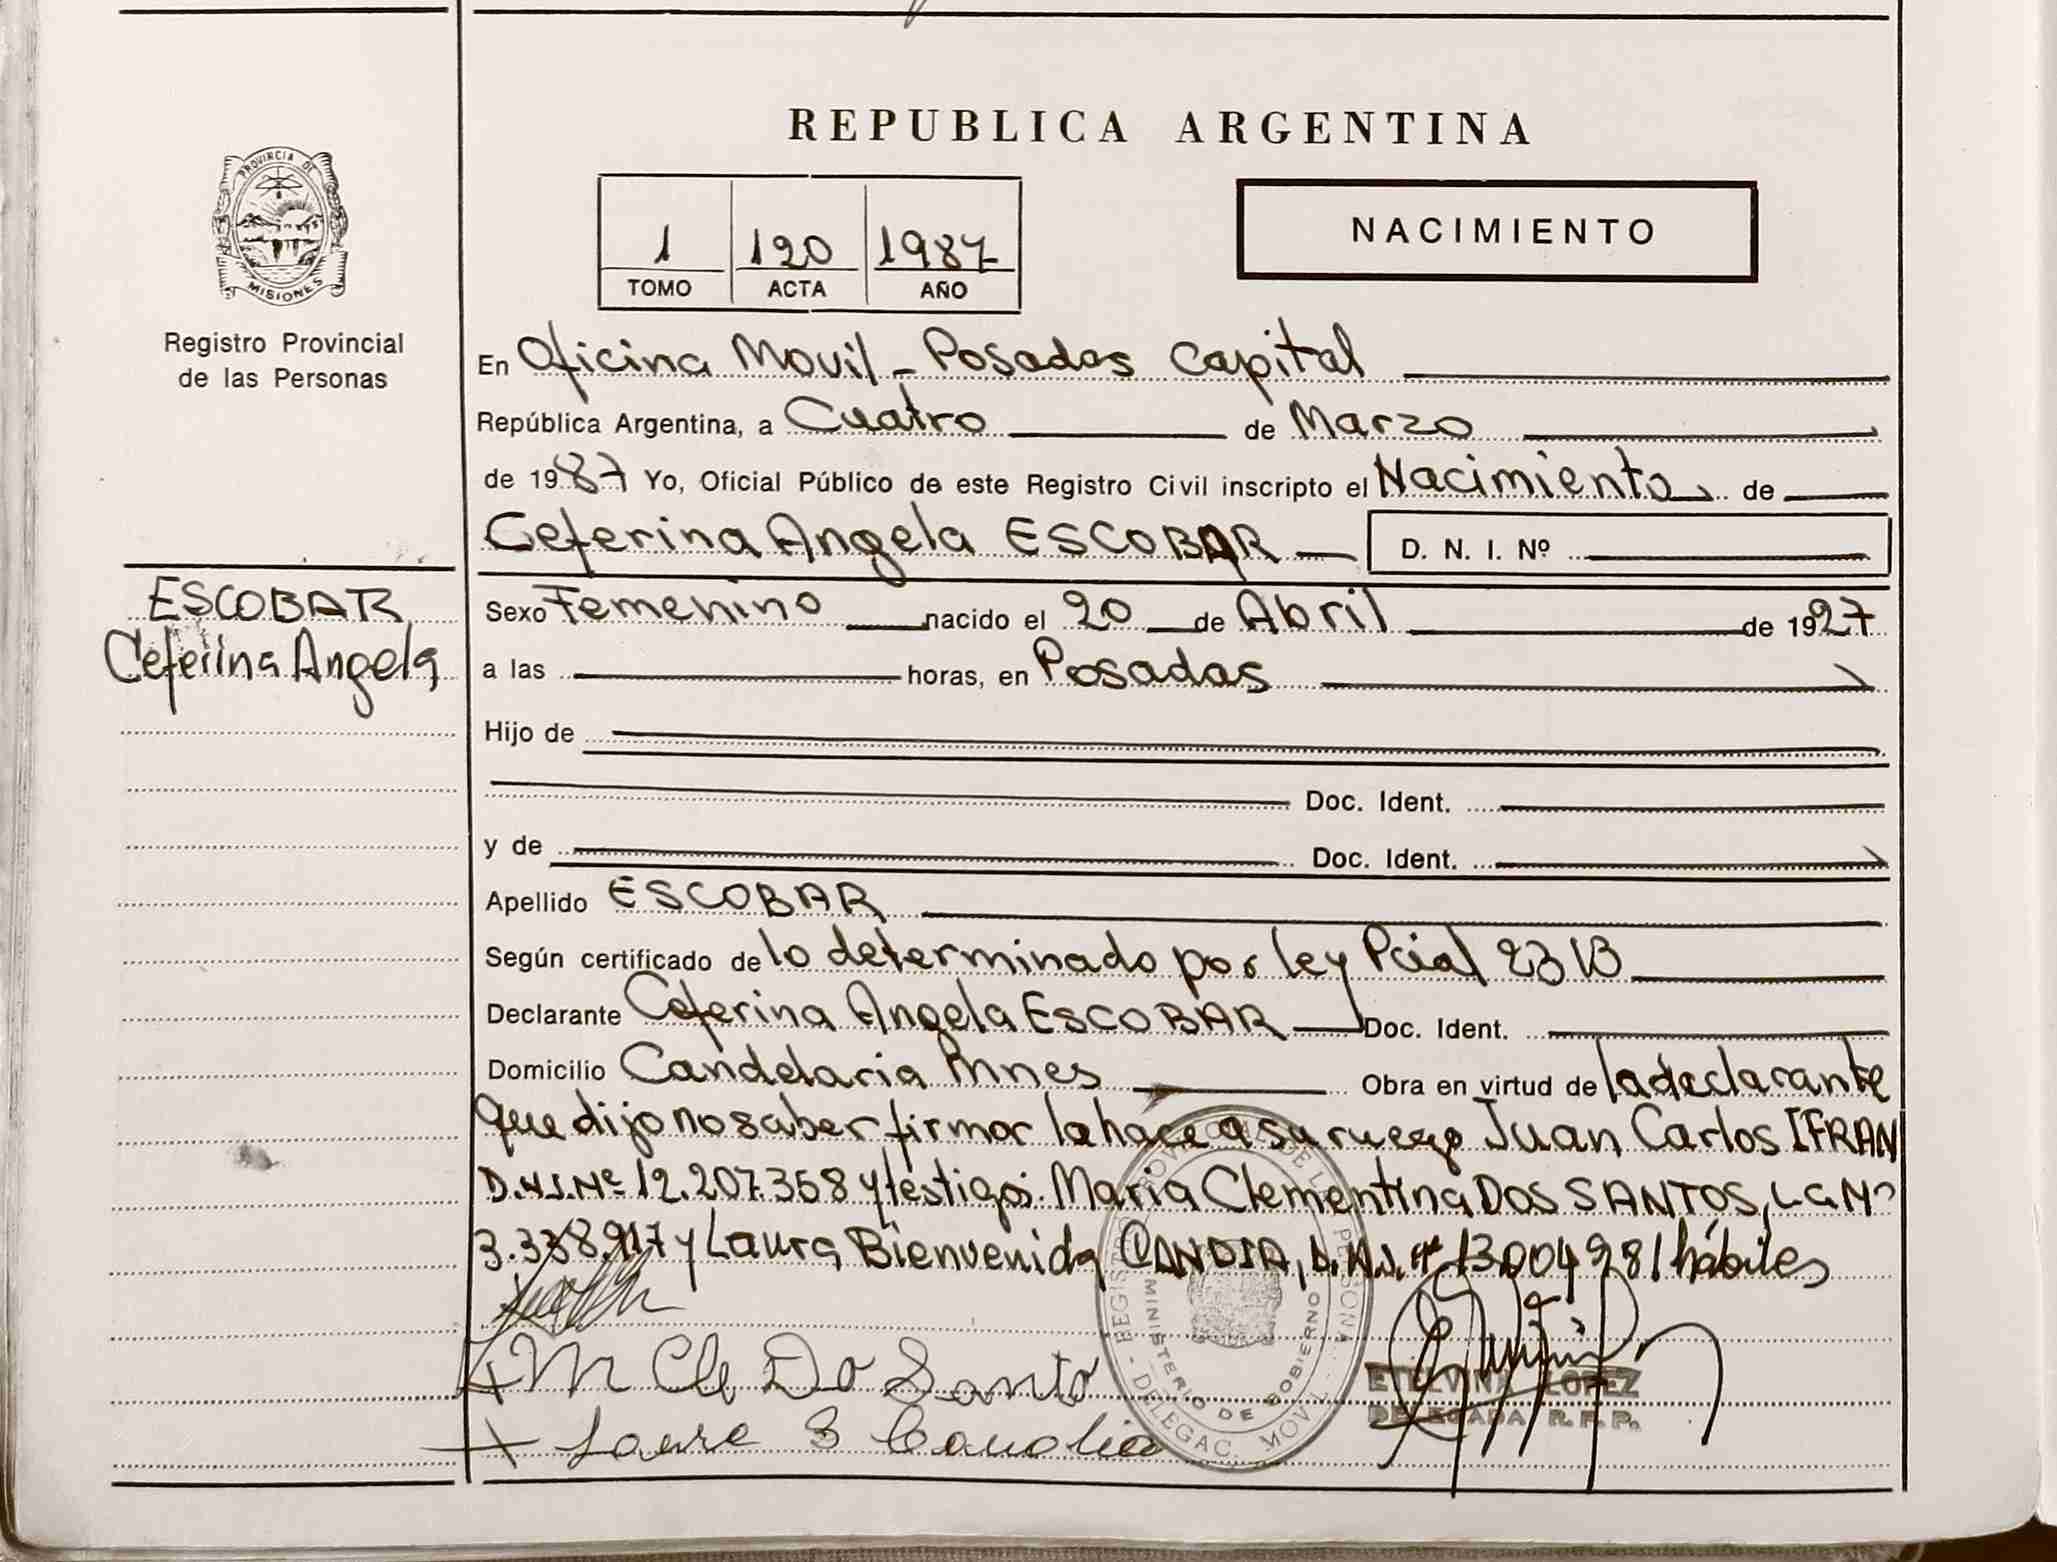 REPUBLICA ARGENTINA
PROVINCIA DE
MISIONES
Registro Provincial
de las Personas
1 120 1987
TOMO ACTA AÑO
NACIMIENTO
En Oficina Movil - Posadas Capital
República Argentina, a Cuatro de Marzo
de 1987 Yo, Oficial Público de este Registro Civil inscripto el Nacimiento de
Ceferina Angela ESCOBAR D. N. I. Nº
ESCOBAR
Ceferina Angela
Sexo Femenino nacido el 20 de Abril de 1927
a las horas, en Posadas
Hijo de
Doc. Ident.
y de Doc. Ident.
Apellido ESCOBAR
Según certificado de lo determinado por ley Pcial
Declarante Ceferina Angela ESCOBAR Doc. Ident.
Domicilio Candelaria Mnes Obra en virtud de la declarante
que dijo no saber firmar la hace a su ruego Juan Carlos IFRAN
D.N.I.Nº 12.207.358 y testigos: Maria Clementina DOS SANTOS, L C Nº
y Laura Bienvenida CANDIA, D.N.I. Nº 13.004.981 hábiles
M Cle Do Santo
Laura B Candia
REGISTRO PROVINCIAL DE LAS PERSONAS
MINISTERIO DE GOBIERNO
DELEGAC. MOVIL
ETELVINA LOPEZ
DELEGADA R.P.P.